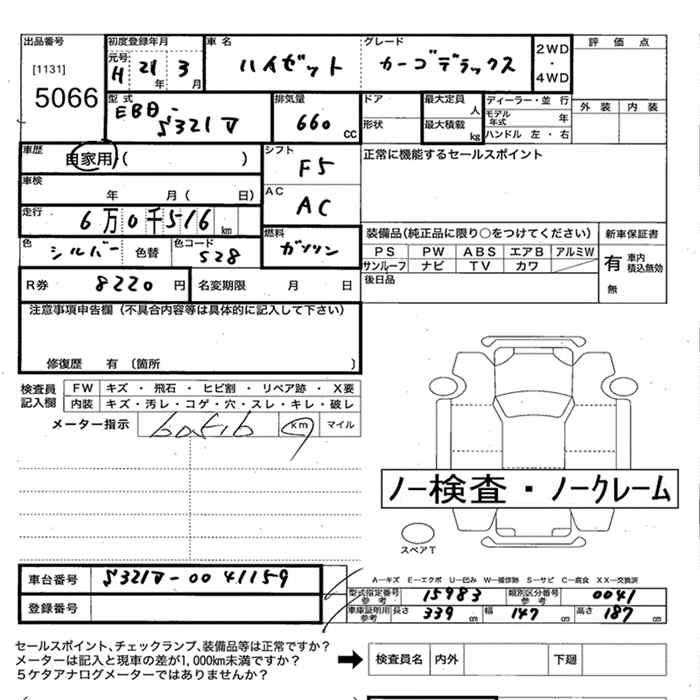 出品番号 初度登録年月 車名 グレード 評価点
[1131] 元号 H 21年 3月 ハイゼット カーゴデラックス 2WD・4WD
5066 型式 EBD-S321V 排気量 660 CC ドア 最大定員 人 ディーラー・並行 外装 内装
形状 最大積載 kg モデル年式 年
ハンドル 左・右
車歴 自家用( ) シフト F5 正常に機能するセールスポイント
車検 年 月( 日) AC AC
走行 6万0千516 km 燃料 ガソリン 装備品(純正品に限り○をつけてください) 新車保証書
色 シルバー 色替 色コード S28 PS PW ABS エアB アルミW 有 車内積込無効
サンルーフ ナビ TV カワ
R券 8220円 名変期限 月 日 後日品 無
注意事項申告欄(不具合内容等は具体的に記入して下さい)
修復歴 有〔箇所 〕
検査員記入欄 FW キズ・飛石・ヒビ割・リペア跡・X要
内装 キズ・汚レ・コゲ・穴・スレ・キレ・破レ
メーター指示 km マイル
ノー検査・ノークレーム
スペアT
車台番号 S321V-0041159 A―キズ E―エクボ U―凹み W―補修跡 S―サビ C―腐食 XX―交換済
型式指定番号参考 15983 類別区分番号参考 0041
登録番号 車庫証明用参考 長さ 339 cm 幅 147 cm 高さ 187 cm
セールスポイント、チェックランプ、装備品等は正常ですか?
メーターは記入と現車の差が1,000km未満ですか?
5ケタアナログメーターではありませんか? ➡ 検査員名 内外 下廻